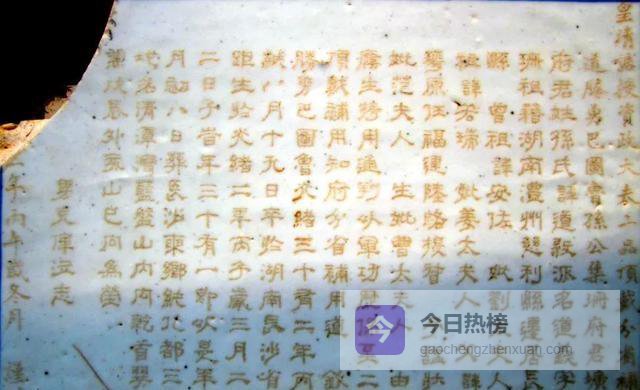 皇清誥授資政大夫二品頂戴分省補
道勝勇巴圖魯孫公集珊府君
府君姓孫氏諱道派名道
珊祖籍湖南澧州慈利縣遷居長
縣曾祖諱安佐 妣劉人
祖諱若瑞 妣姜太夫人
原任福建陸路提督
妣范夫人 生妣曹太夫人 由
蔭生用通判以軍功二
頂戴補用知府分省補用道 欽
勝勇巴圖魯光緒三十有二年丙
八月十九日卒於湖南長沙省
距生於光緒二年丙子歲三月二
二日子當年三十有一即以是年
月初八日葬長沙東鄉純化都三
地名清潭藍盤山內向乾首巽
辰外亥山巳向為塋
兄庠泣志
年丙午歲冬月 謹
今日热榜
gaochengzhenxuan.com